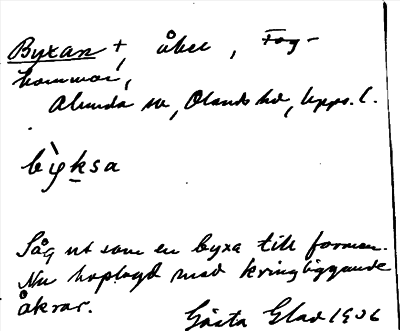 Byxan +, åker, Tog-
hammar,
Alunda sn, Olands hd, Upps. l.
bỳksa
Såg ut som en byxa till formen.
Nu hoplagd med kringliggande
åkrar.
Gösta Elad 1906